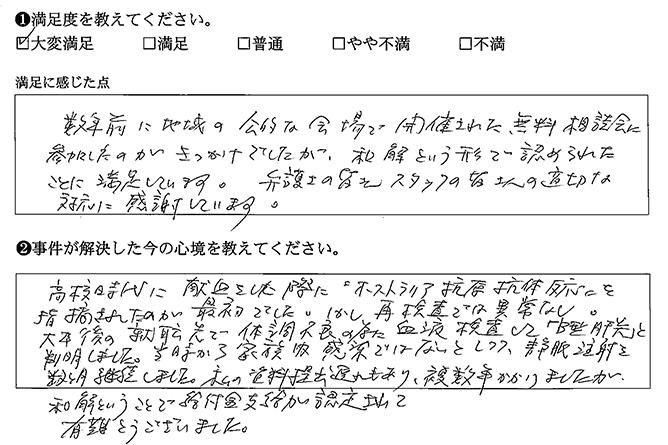 ❶満足度を教えてください。
☑大変満足 □満足 □普通 □やや不満 □不満
満足に感じた点
数年前に地域の公的な会場で開催された無料相談会に
参加したのがきっかけでしたが、和解という形で認められた
ことに満足しています。弁護士の皆さんスタッフの皆さんの適切な
対応に感謝しています。
❷事件が解決した今の心境を教えてください。
高校時代に献血をした際に"オーストラリア抗原抗体反応"を
指摘されたのが最初でした。しかし再検査では異常なし。
大卒後の就職先で体調不良の為血液検査して"B型肝炎"と
判明しました。当時から家族内感染ではないとして、静脈注射を
数ヶ月継続しました。私の資料提出遅れもあり、複数年かかりましたが
和解ということで給付金支給が認定されて
有難うございました。